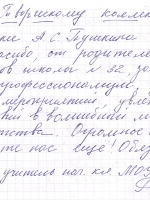 Творческому коллек
ке А С Пушкина
асибо, от родителе
ов школы N 32, за
профессиональную
мероприятий, увле
вии в волшебный м
тства. Огромное с
те нас ещё!
учитель нач. кл. МОУ